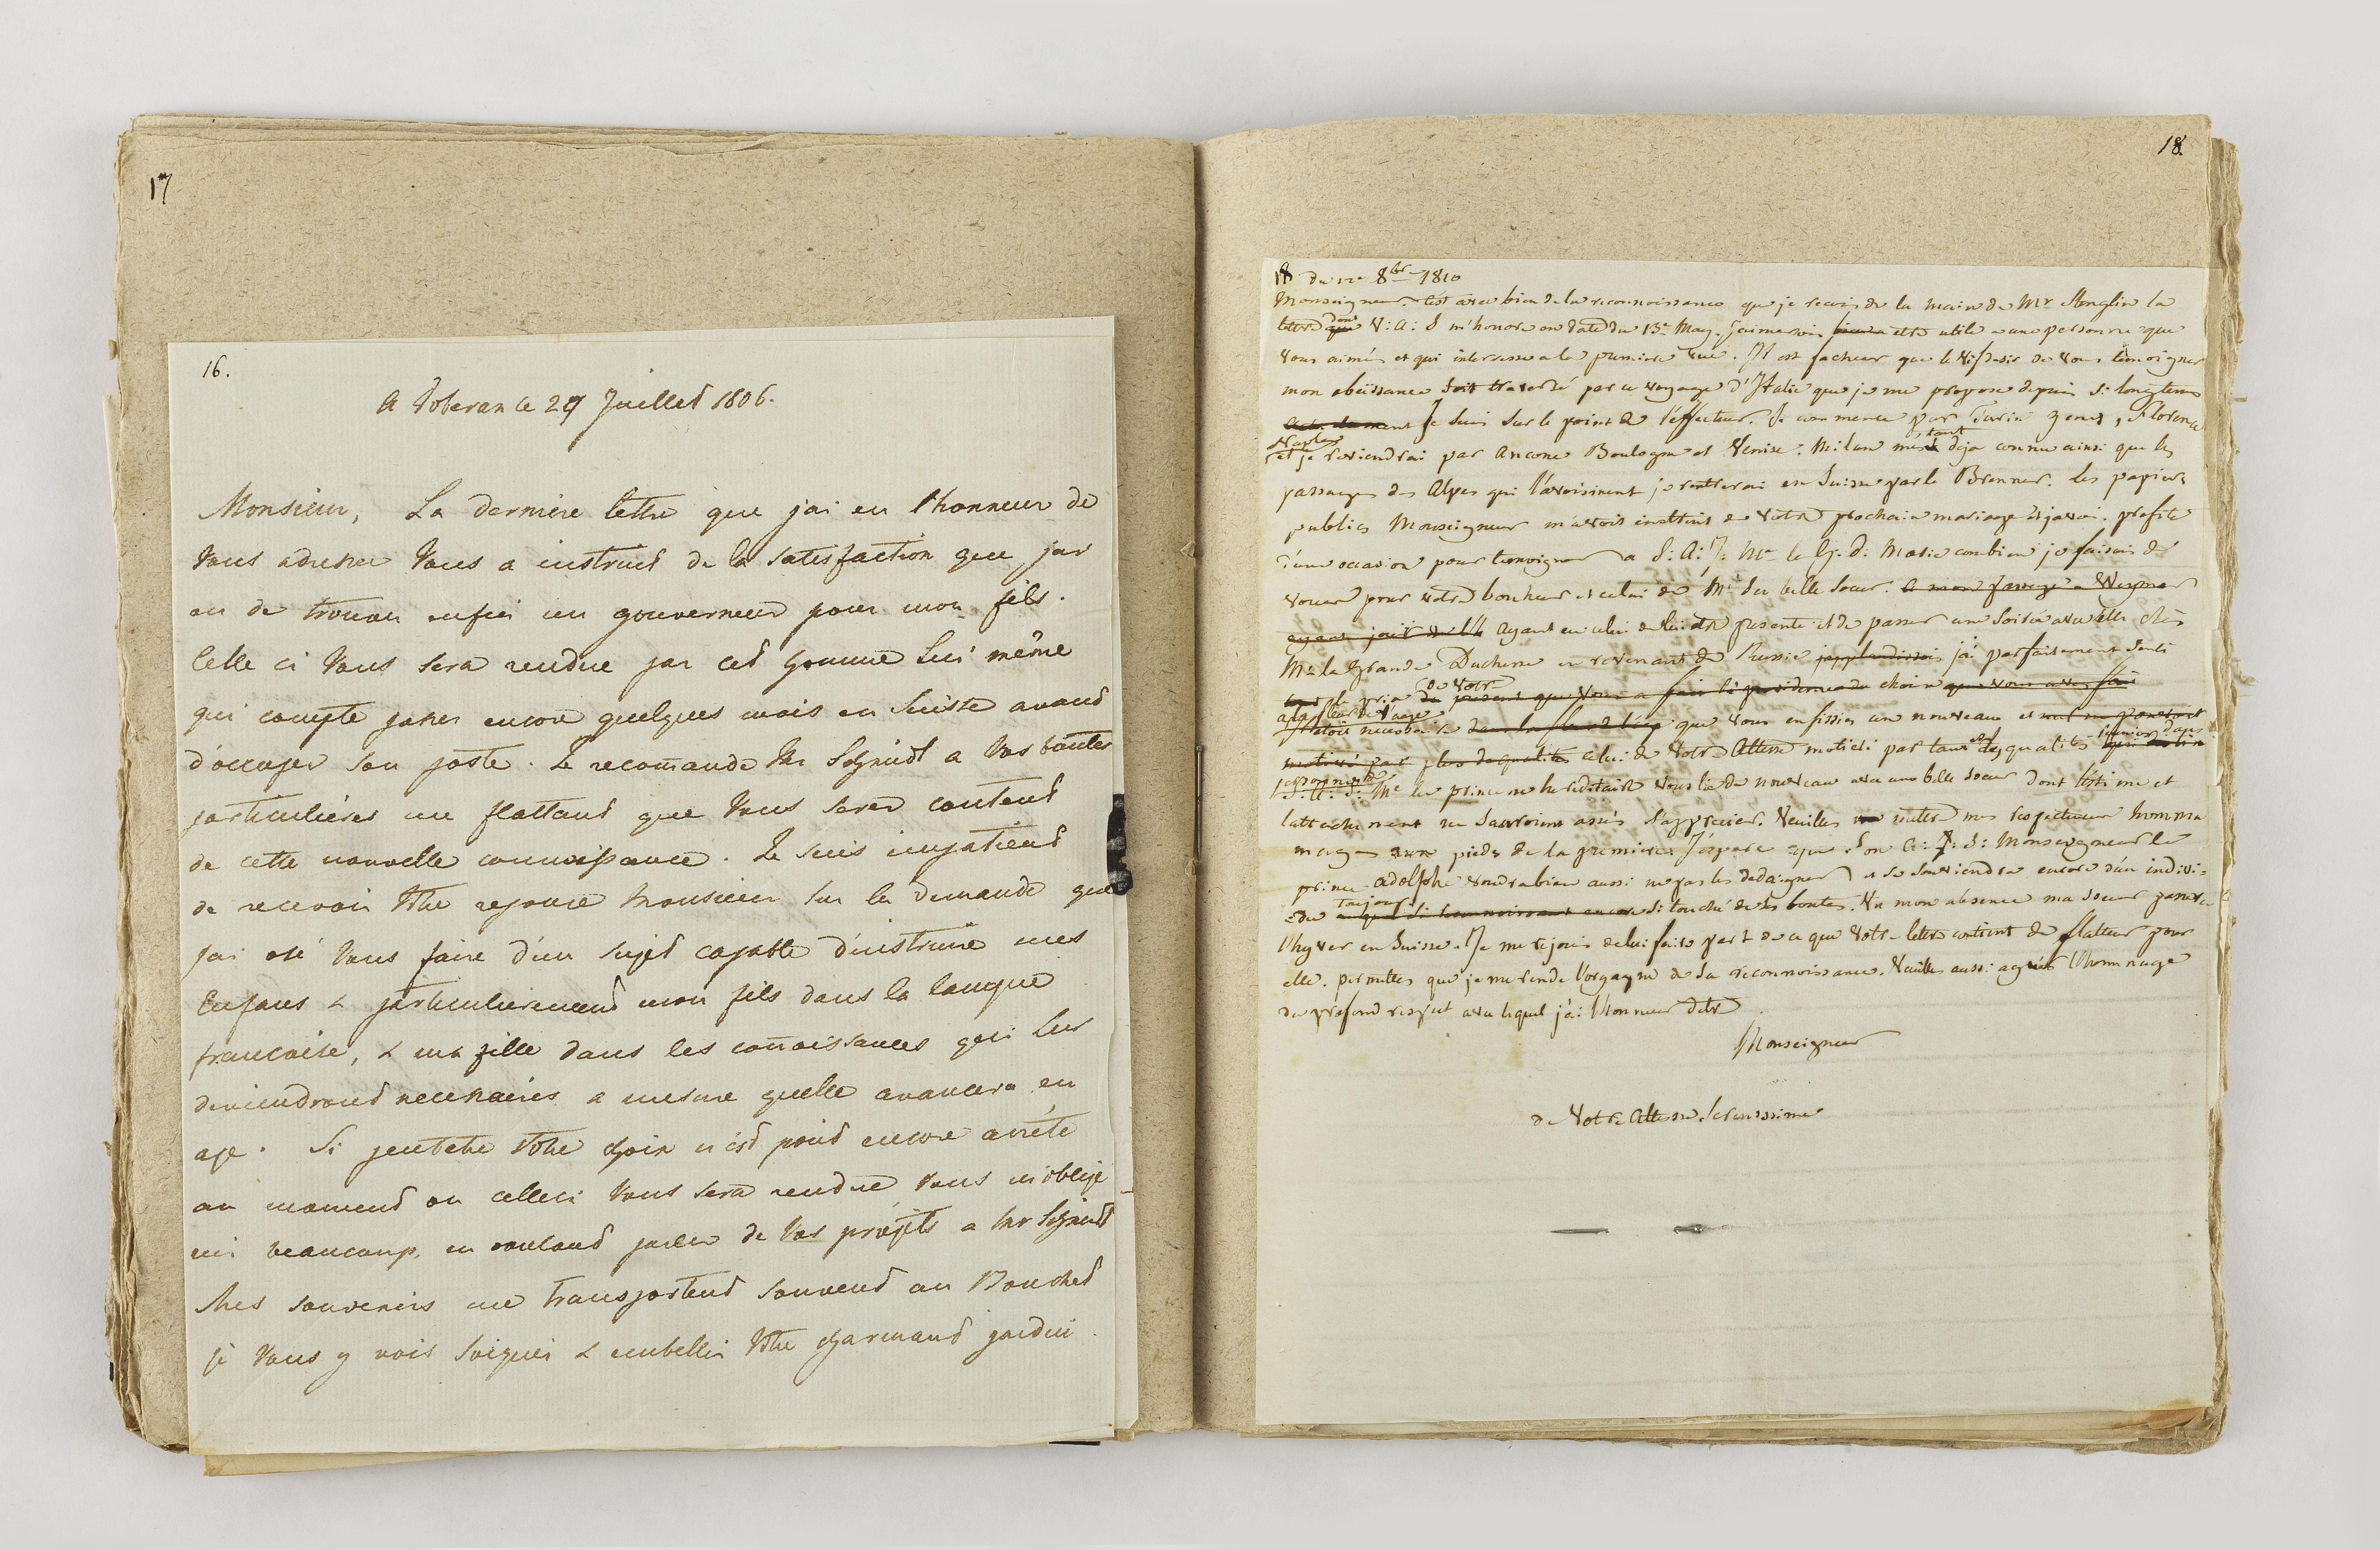 17
16.
A Doberan le 29 Juillet 1806.
Monsieur, La derniere lettre que jai eu l'honneur de
Vous adresser Vous a instruit de la satisfaction que jai
eu de trouver enfin un gouverneur pour mon fils.
Celle ci Vous sera rendue par cet homme lui même
qui compte passer encore quelques mois en Suisse avant
d'occuper son poste. Je recomande Mr Schmidt a Vos bontés
particulières me flattant que Vous serez content
de cette nouvelle connoissance. Je suis impatient
de recevoir Votre reponse Monsieur sur la demande que
jai osé Vous faire d'un sujet capable d'instruire mes
Enfans & particulierement mon fils dans la langue
francoise, & ma fille dans les connoissances qui lui
deviendront necessaires a mesure quelle avancera en
age. Si peutetre Votre choix n'est point encore arrêté
au moment ou celleci Vous sera rendue Vous m'oblige
rez beaucoup, en voulant parler de Vos projets a Mr Schmidt
Mes souvenirs me transportent souvent au Bouchet
je Vous y vois soigner & embellir Votre charmant jardin.
18.
18 du 12e 8bre 1810
Monseigneur. C'est avec bien de la reconnoissance que je recois de la main de Mr Stenglin la
lettre que dont V: A: S m'honore en date du 13e May. J'aimerois bien etre utile a une personne que
vous aimés et qui interesse a la premiere vue. Il est facheux que le vif desir de vous temoigner
mon obeissance soit traversé par ce voyage d'Italie que je me propose depuis si longtems
Je suis sur le point de l'effectuer. Je commence par Turin Genes, Florence
Naples
et je reviendrai par Ancone Boulogne et Venise. Milan m'étant deja connu ainsi que les
passages des Alpes qui l'avoisinent je rentrerai en Suisse par le Brenner. les papiers
publics Monseigneur m'avoit instruit de votre prochain mariage et javois profité
d'une occasion pour temoigner a S: A: I: Me la G. D: Marie combien je faisois des
voeux pour votre bonheur et celui de Me Sa belle Soeur. a mon passage a Weymar
ayant joui Ayant eu celui de lui etre presenté et de passer une soirée avec elle chés
Me la Grande Duchesse en revenant de Russie japplaudissois j'ai parfaitement senti
le prix de votre choix que vous avez fait
que vous en fissies un nouveau et
celui de Votre Altesse motivé par tant de qualités
S: A: S: Me la princesse hereditaire vous lie de nouveau avec une belle soeur dont l'estime et
l'attachement ne sauroient assés s'apprecier. Veuilles mettre mes respectueux homma
mages aux pieds de la premiere J'espere que Son A: S: Monseigneur le
prince Adolphe voudra bien aussi ne pas les dedaigner et se souviendra encore d'un indivi-
du toujours si touché de ses bontés. Vu mon absence ma soeur passera
l'hyver en Suisse. Je me rejouis de lui faire part de ce que votre lettre contient de flatteur pour
elle. permettes que je me rende l'organe de sa reconnoissance. Veuilles aussi agréer l'hommage
du profond respect avec lequel j'ai l'honneur detre
Monseigneur
de Votre Altesse Serenissime